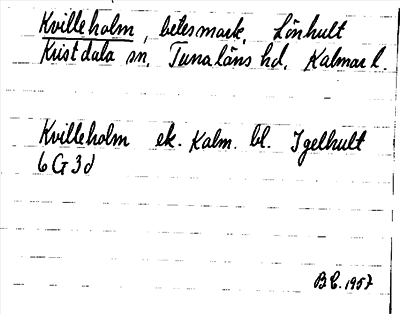 Kvilleholm, betesmark, Lönhult
Kristdala sn, Tunaläns hd, Kalmar l.
Kvilleholm ek. Kalm. bl. Igelhult
6 G 3d
1957